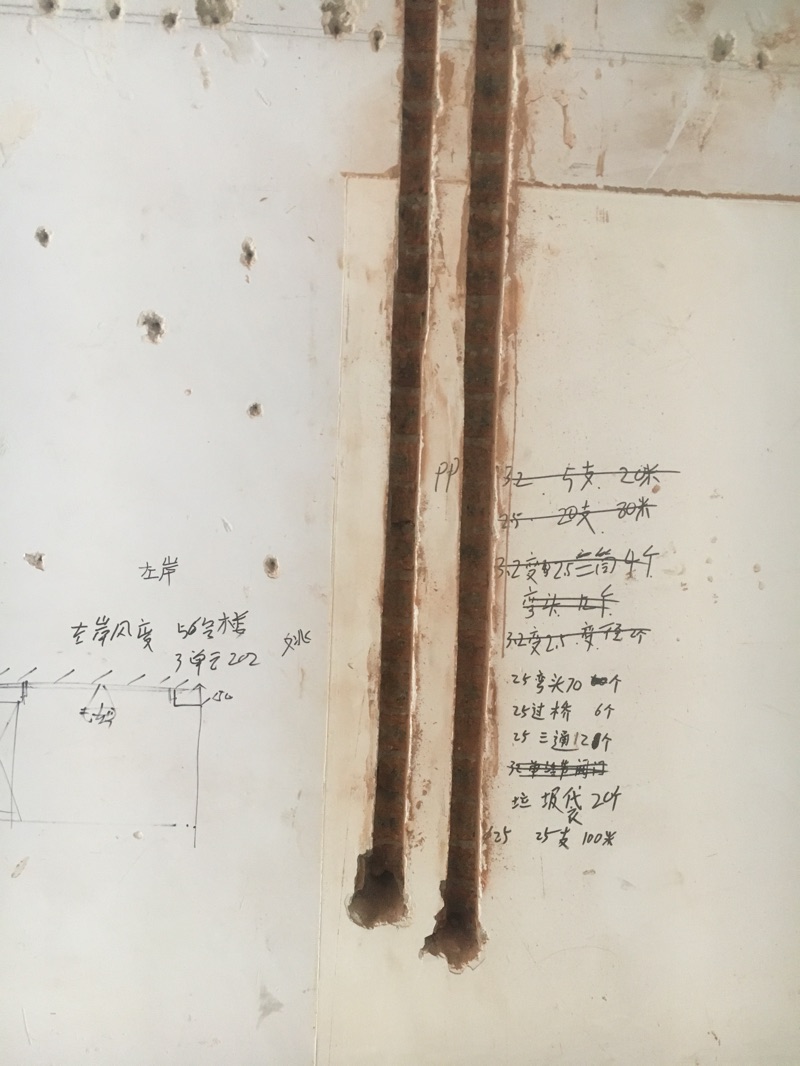 PP 32 5支 20米
25 20支 80米
32变25三筒4个
弯头 12个
32变25 变径2个
25弯头70个
25过桥 6个
25三通12个
垃圾袋 20个
25 25支 100米
左岸
左岸风度 56号楼
3单元202
150